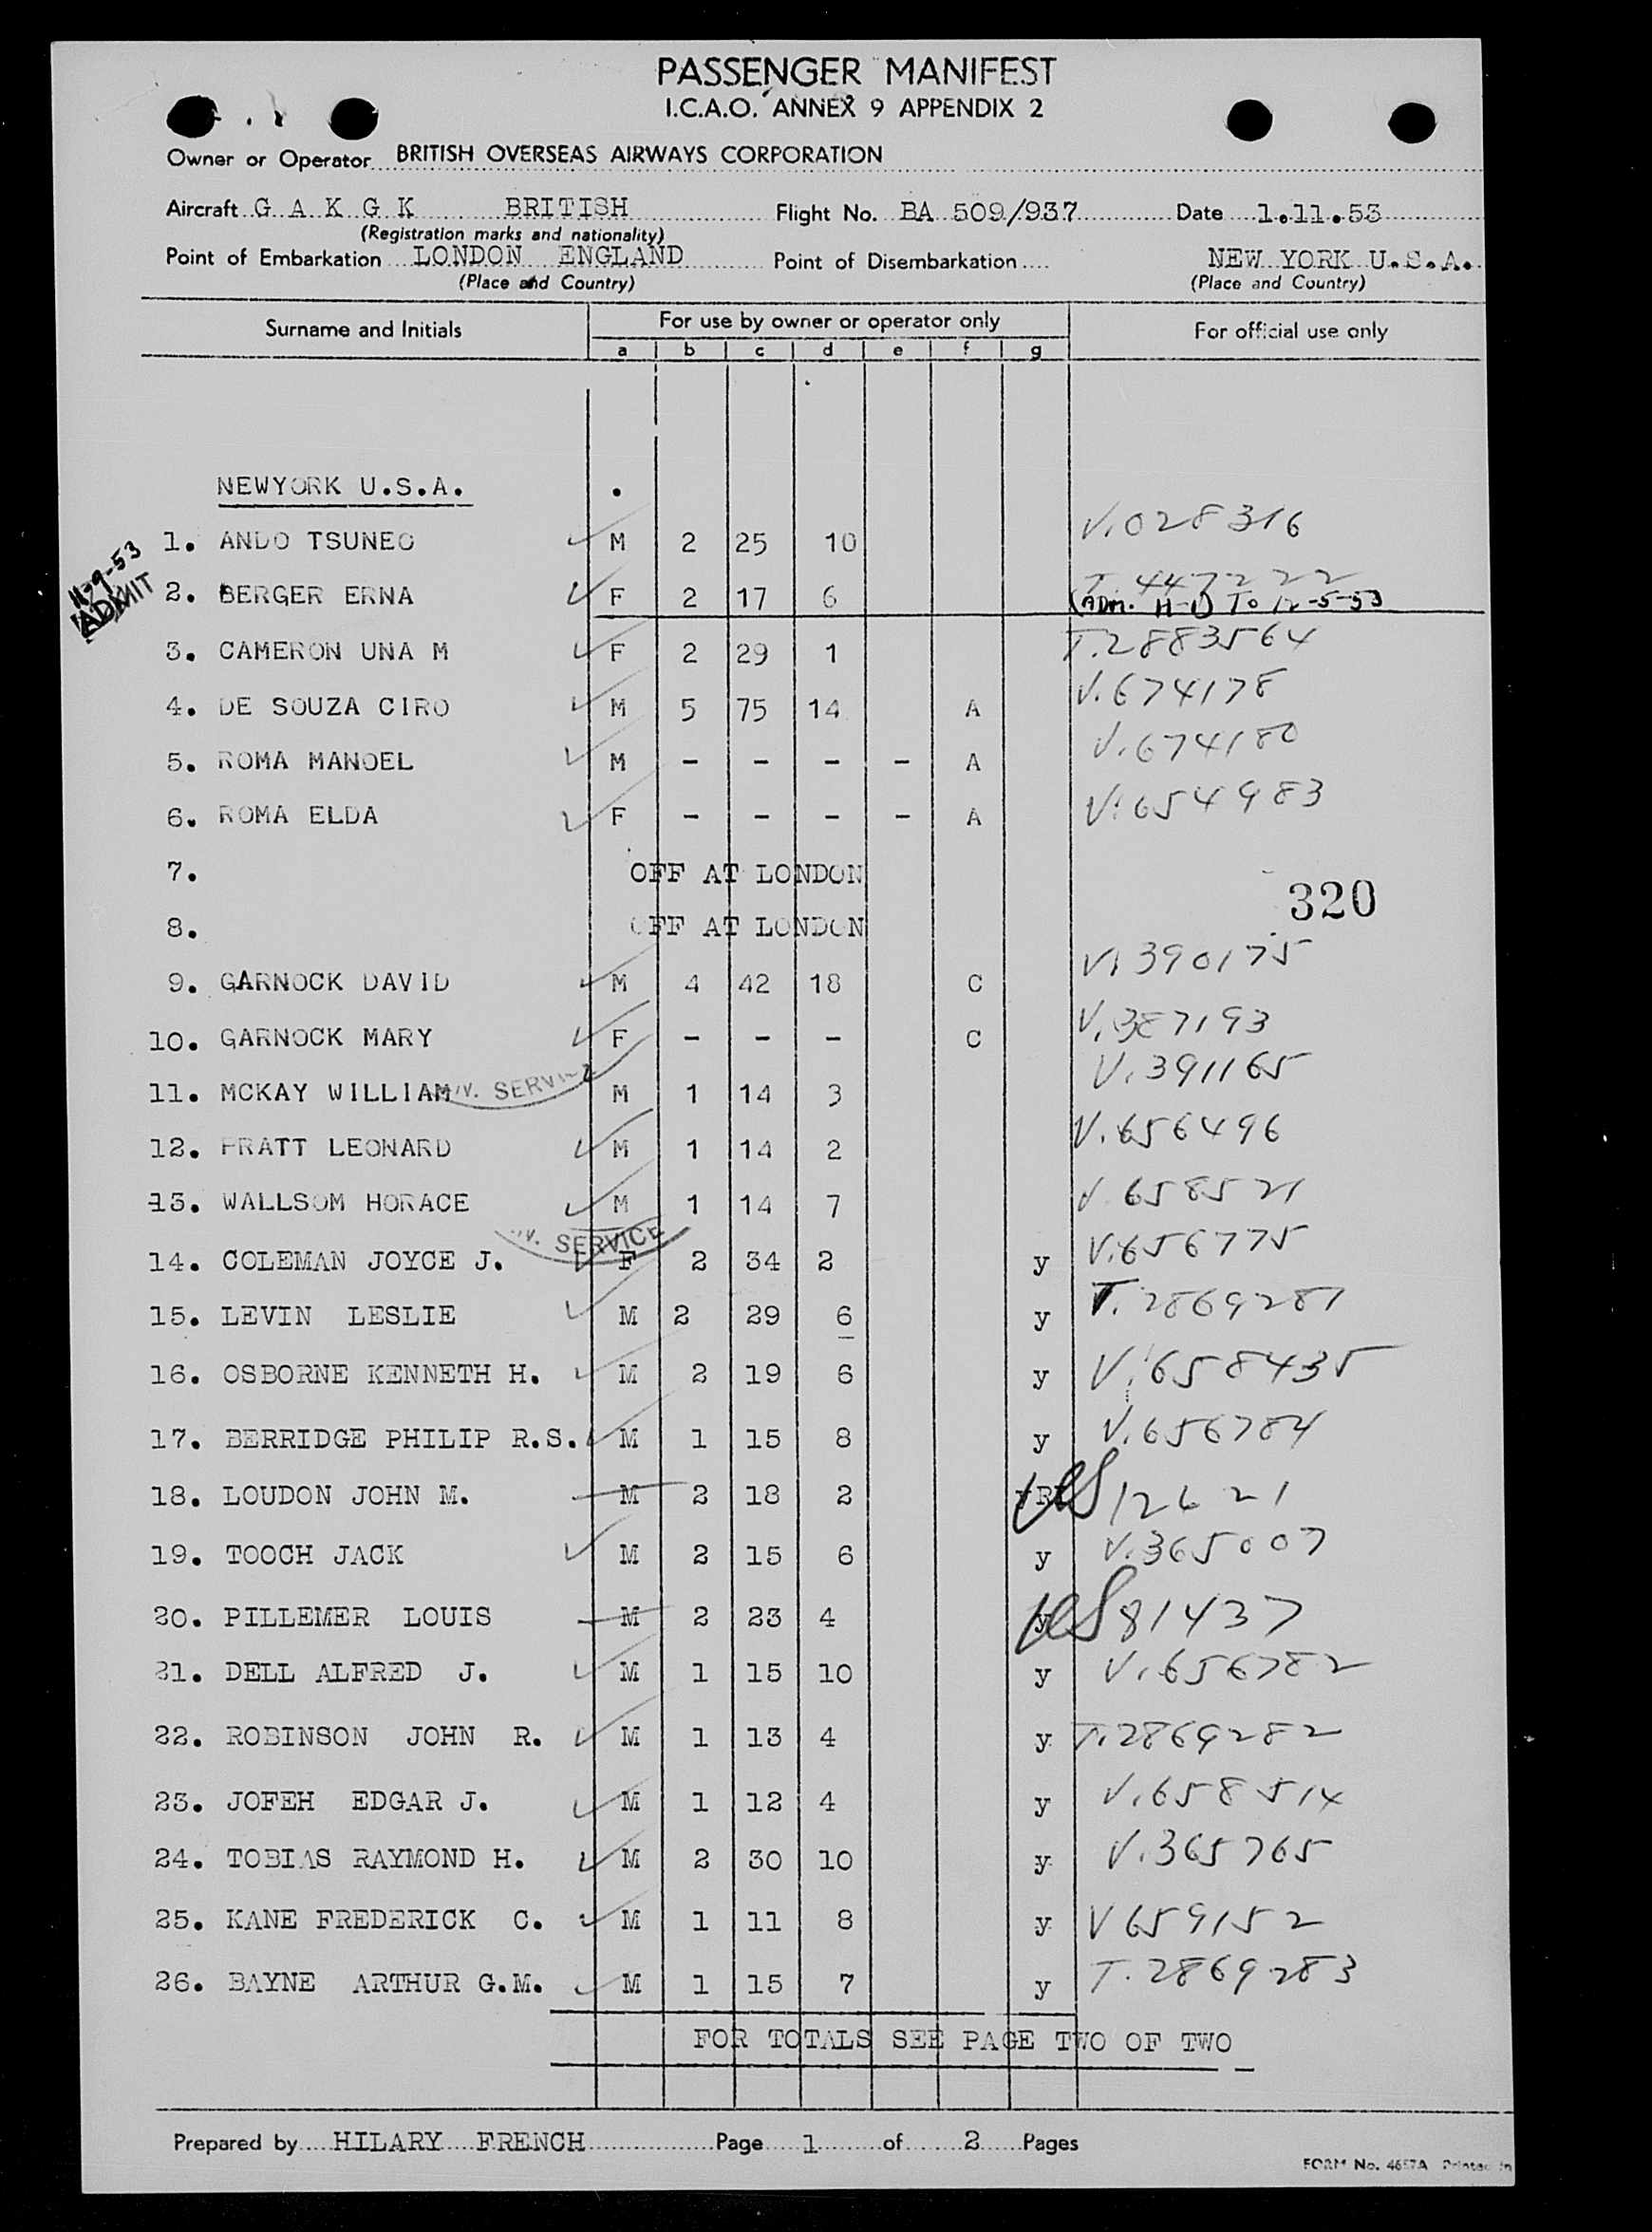 PASSENGER MANIFEST
I.C.A.O. ANNEX 9 APPENDIX 2
Owner or Operator BRITISH OVERSEAS AIRWAYS CORPORATION
Aircraft G A K G K BRITISH Flight No. BA 509/937 Date 1.11.53
(Registration marks and nationality)
Point of Embarkation LONDON ENGLAND Point of Disembarkation NEW YORK U.S.A.
(Place and Country) (Place and Country)
Surname and Initials For use by owner or operator only For official use only
a b c d e f g
NEWYORK U.S.A.
1. ANDO TSUNEO M 2 25 10 V.028316
11-9-53
ADMIT
2. BERGER ERNA F 2 17 6 T.447222
(ADM. H-1) To 12-5-53
3. CAMERON UNA M F 2 29 1 T.2883564
4. DE SOUZA CIRO M 5 75 14 A V.674178
5. ROMA MANOEL M - - - - A V.674180
6. ROMA ELDA F - - - - A V.654983
7. OFF AT LONDON
320
8. OFF AT LONDON
9. GARNOCK DAVID M 4 42 18 C V.390175
10. GARNOCK MARY F - - - C V.387193
11. MCKAY WILLIAM SERVICE M 1 14 3 V.391165
12. PRATT LEONARD M 1 14 2 V.656496
13. WALLSOM HORACE M 1 14 7 V.658521
SERVICE
14. COLEMAN JOYCE J. F 2 34 2 y V.656775
15. LEVIN LESLIE M 2 29 6 y T.2869281
16. OSBORNE KENNETH H. M 2 19 6 y V.658435
17. BERRIDGE PHILIP R.S. M 1 15 8 y V.656784
18. LOUDON JOHN M. M 2 18 2 US 12621
19. TOOCH JACK M 2 15 6 y V.365007
20. PILLEMER LOUIS M 2 23 4 y US 81437
21. DELL ALFRED J. M 1 15 10 y V.656782
22. ROBINSON JOHN R. M 1 13 4 y T.2869282
23. JOFEH EDGAR J. M 1 12 4 y V.658514
24. TOBIAS RAYMOND H. M 2 30 10 y V.365765
25. KANE FREDERICK C. M 1 11 8 y V659152
26. BAYNE ARTHUR G.M. M 1 15 7 y T.2869283
FOR TOTALS SEE PAGE TWO OF TWO
Prepared by HILARY FRENCH Page 1 of 2 Pages
FORM No. 4657A Printed in